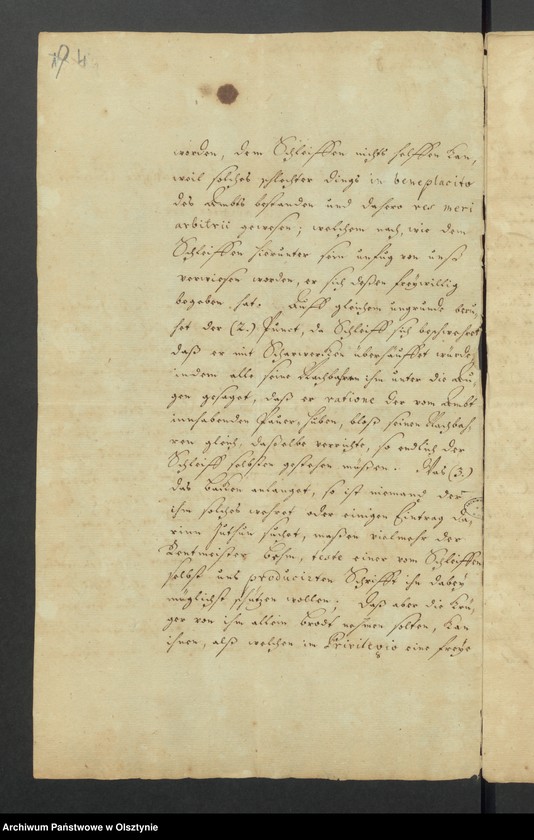 worden, dem Schleiffen nichts helffen kan,
weil solches schlechter dings in beneplacito
des Ambts bestanden und dahero res meri
arbitrii gewesen; welchem nach, wie dem
Schleiffen hierunter sein unfug von unß
verwiesen worden, er sich deßen freywillig
begeben hat. Auff gleichem ungrunde beru-
het der (2.) Punct, da Schleiff sich beschwehret
daß er mit Scharwercken überhäuffet würde,
indem alle seine Nachbahren ihm unter die Au-
gen gesaget, daß er ratione der vom Ambt
innhabenden Pauer-huben, bloß seinen Nachbah-
ren gleich, daßelbe verrichte, so endlich der
Schleiff selbsten gestehen müßen. Was (3.)
das Backen anlanget, so ist niemand der
ihm solches wehret oder einigen Eintrag da-
rinn zuthun suchet, maßen vielmehr der
Rentmeister Behm, teste einer vom Schleiffen
selbst uns producirten Schrifft ihn dabey
möglichst schützen wollen. Daß aber die Krü-
ger von ihm allein Brodt nehmen solten, kan
ihnen, alß welchen in Privilegio eine freye
Archiwum Państwowe w Olsztynie